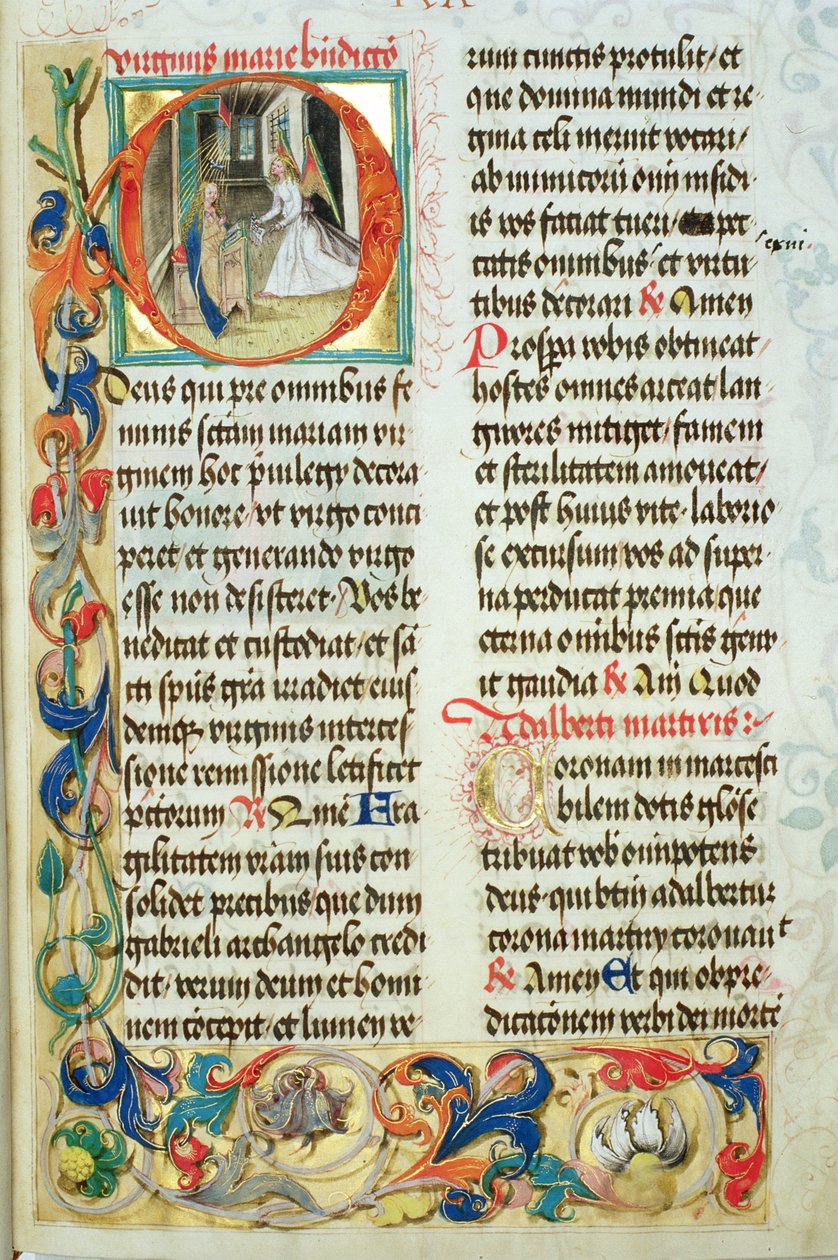 virginis marie bndicto
Deus qui pre omnibus fe
minis sctam mariam vir-
ginem hoc pruilegy decora-
uit honore/ vt virgo conci
peret/ et generando virgo
esse non desisteret· Vos be-
nedicat et custodiat/ et sā
cti spūs gra irradiet/ eius-
demqꝫ virginis interces
sione remissione letificet
pctorum R Amē Fra
gilitatem vrām suis con
solidet precibus/ que dum
gabrieli archangelo credi
dit/ verum deum et homi
nem cōcepit/ et lumen ve-
rum cunctis protulit/ et
que domina mundi et re-
gina celi meruit vocari/
ab inimicorū oīm insidi-
is vos faciat tueri/ pec
catis omnibus exui· et virtu
tibus decorari R Amen
Prospa vobis obtineat/
hostes omnes arceat/ lan-
guores mitiget/ famem
et sterilitatem amoueat/
et post huius vite· laborio
se excursum/ vos ad super-
na perducat premia/ que
eterna omībus sctīs genu-
it gaudia R Am Quod
Adalberti martiris:
Coronam inmarcesci
bilem dotis glose
tribuat vob omīpotens
deus· qui btm adalbertum
corona martiry coronauit
R Amen Et qui ob pre-
dicatōnem verbi dei mortē